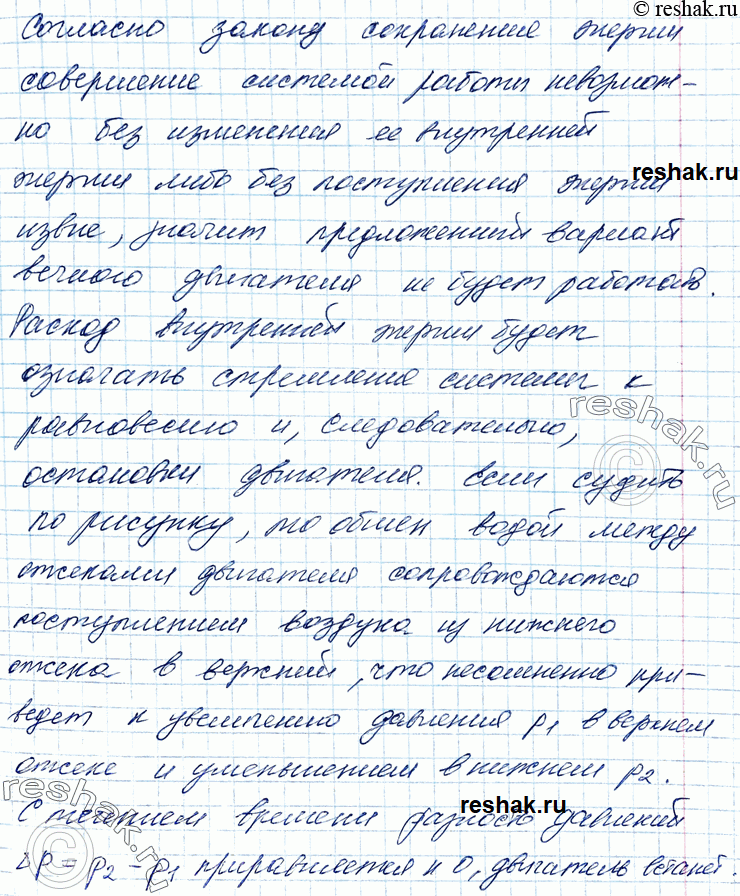 © reshak.ru
Согласно закону сохранение энергии
совершение системой работы невозмож-
но без изменения ее внутренней
reshak.ru
энергии либо без поступления энергии
извне, значит предложенный вариант
вечного двигателя не будет работать.
Расход внутренней энергии будет
означать стремление системы к
равновесию и, следовательно,
остановки двигателя. Если судить
по рисунку, то обмен водой между
отсеками двигателя сопровождаются
поступлением воздуха из нижнего
отсека в верхний, что несомненно при-
ведет к увеличению давления p₁ в верхнем
отсеке и уменьшением в нижнем p₂.
reshak.ru
С течением времени разность давлений
Δp = p₂ - p₁ приравняется к 0, двигатель встанет.